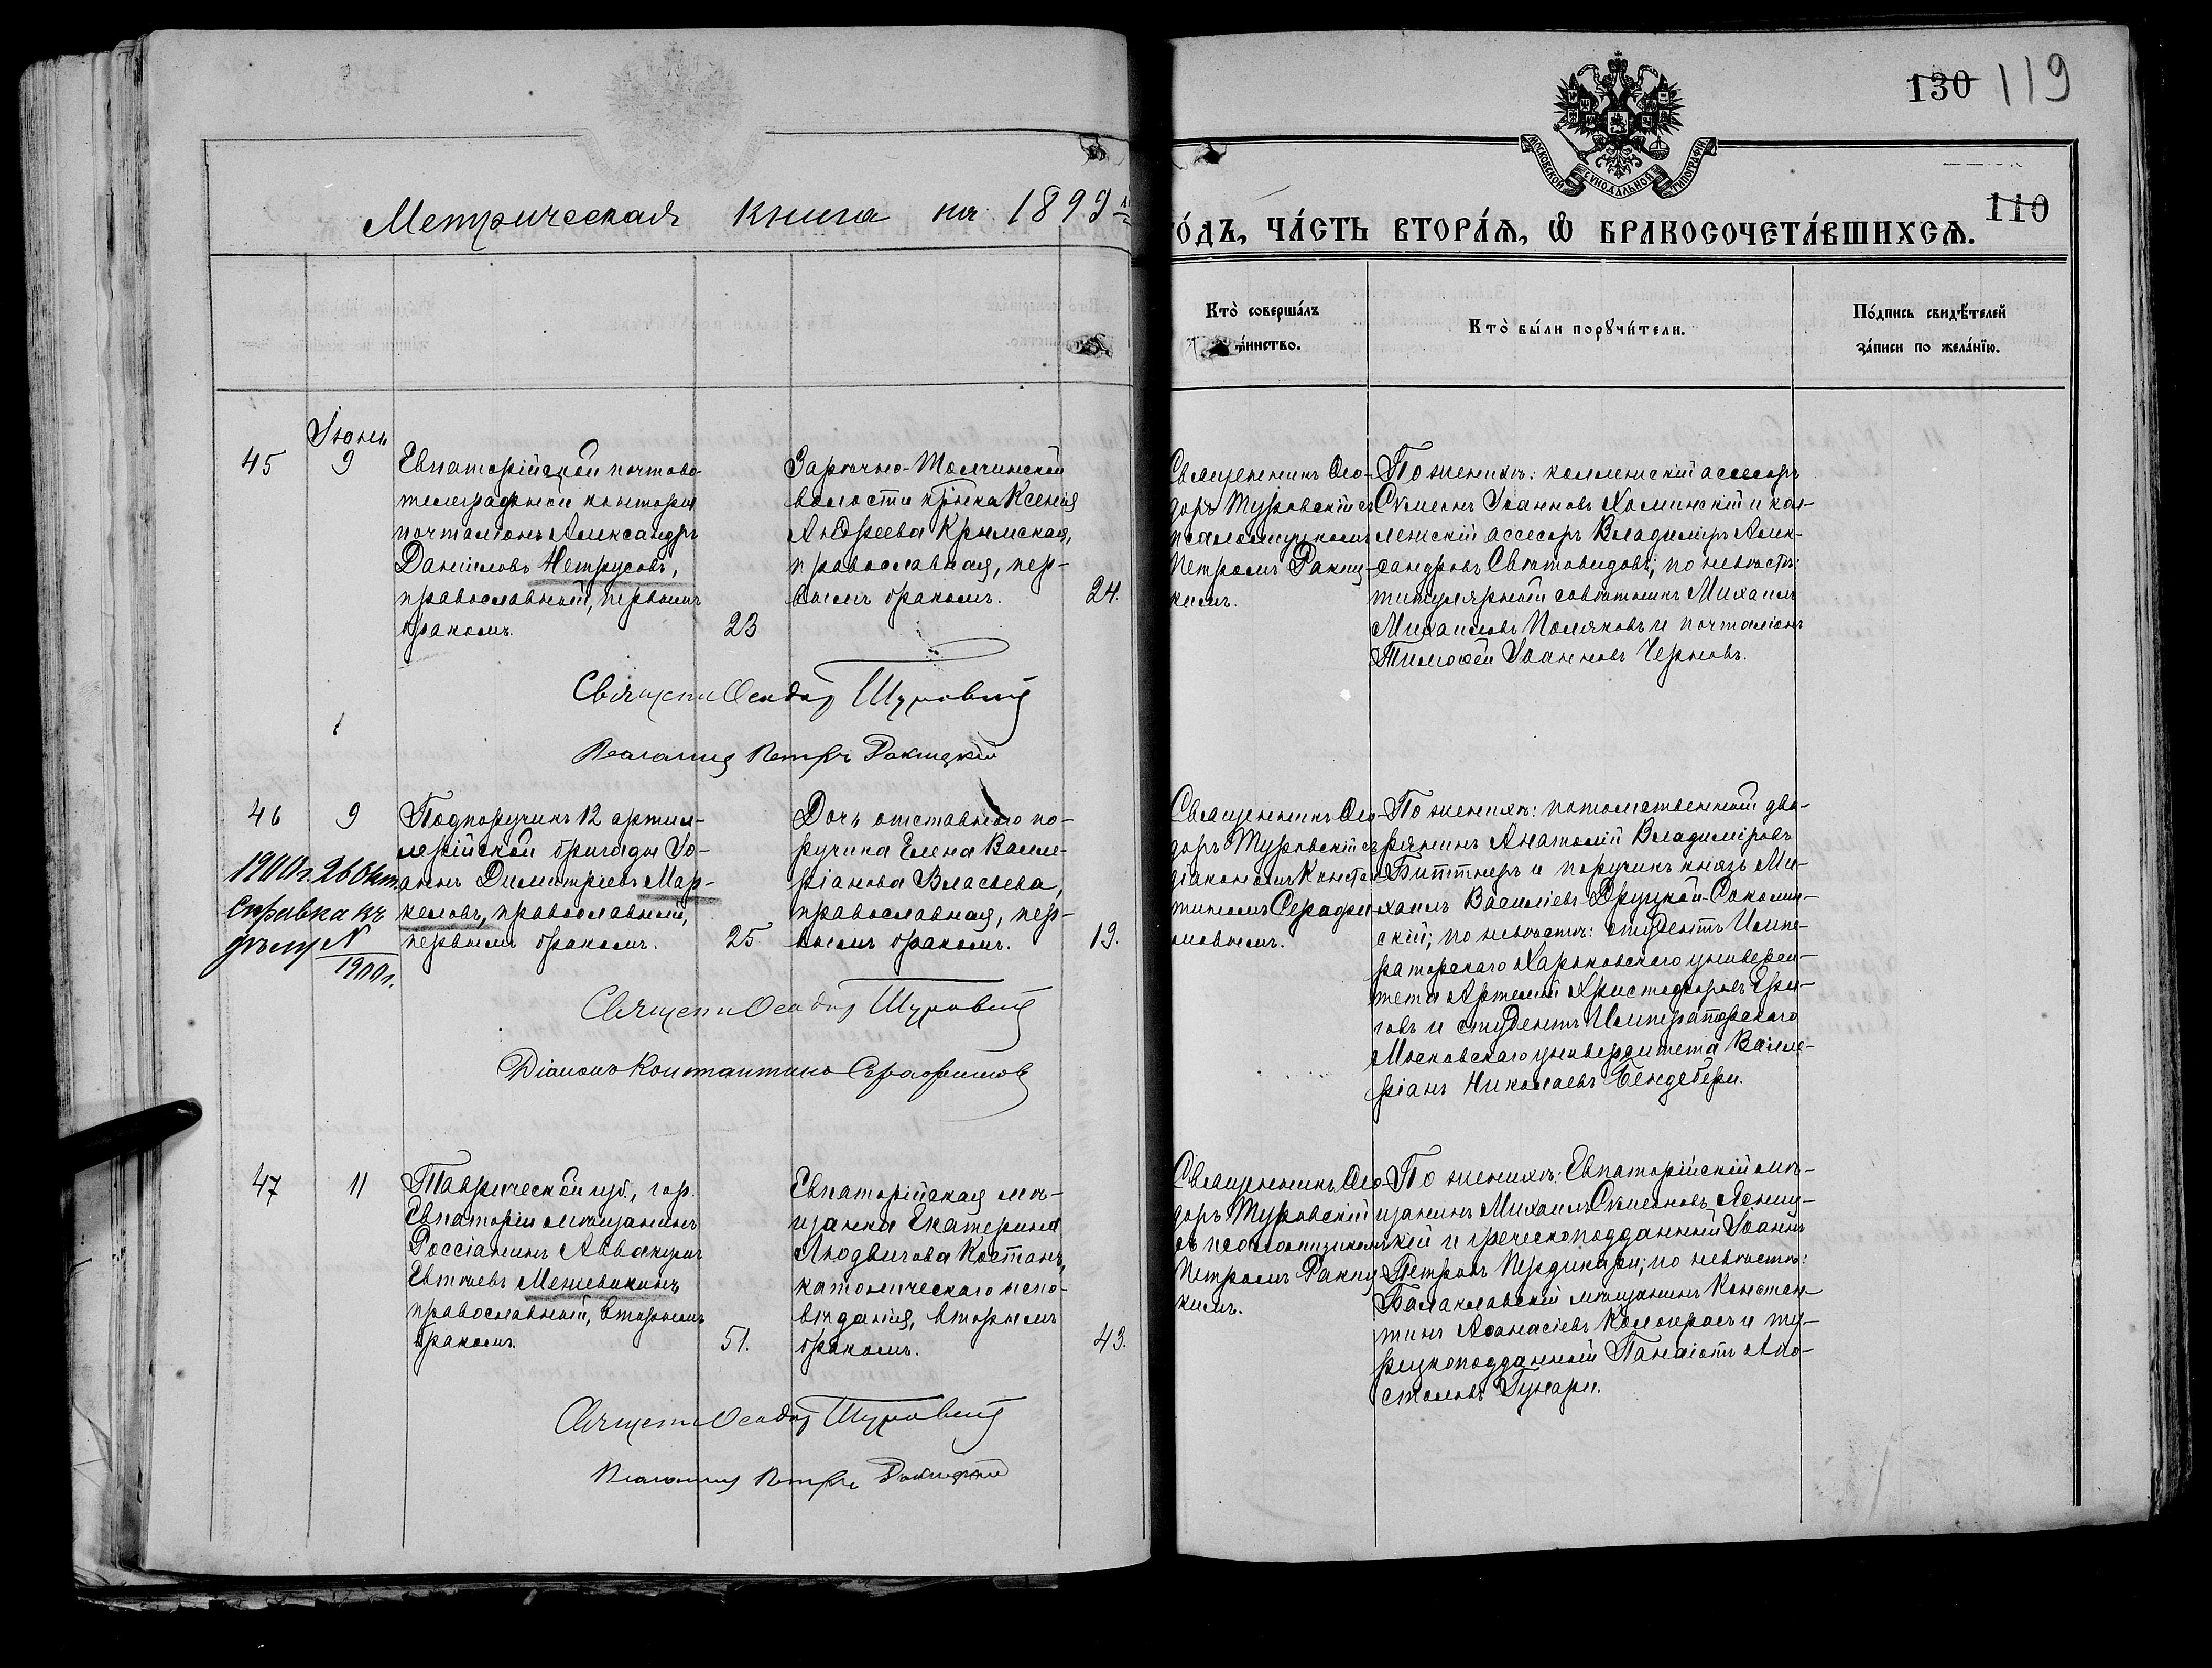 130 119
110
Метрическая книга на 1899
го́дъ, ча́сть втора́ѧ, ѡ҆ бракосочета́вшихсѧ.
МОСКОВСКОЙ СѴНОДАЛЬНОЙ ТИПОГРАФІИ
Кто̀ соверша́лъ
та́инство.
Кто̀ бы́ли порꙋчи́тели.
По́дпись свидѣ́телей
за́писи по жела́нїю.
Іюнь
45 9
Евпаторійской почтово
телеграфной конторы
почталіонъ Александръ
Даніиловъ Нетрусовъ,
православный, первымъ
бракомъ. 23
волости кр-нка Ксенія
Андреева Крымская,
православная, пер-
вымъ бракомъ. 24.
Священникъ Ѳео-
доръ Туровскій съ
псаломщикомъ
Петромъ Ракиц-
кимъ.
По женихѣ: коллежскій ассесоръ
Сѵмеонъ Іоанновъ Холминскій и кол-
лежскій ассесоръ Владиміръ Алек-
сандровъ Святовидовъ; по невѣстѣ:
титулярный совѣтникъ Михаилъ
Михаиловъ Поляковъ и почталіонъ
Тимоѳей Іоанновъ Черновъ.
Священн Ѳеодор Туровскій
Псаломщ Петръ Ракицкій
46 9
1900 г. 26 Окт.
справка къ
дѣлу №
1900 г.
Подпоручикъ 12 артил-
лерійской бригады Іо-
аннъ Димитріевъ Мар-
келовъ, православный,
первымъ бракомъ. 25
Дочь отставного по-
ручика Елена Вале-
ріанова Власьева,
православная, пер-
вымъ бракомъ. 19.
Священникъ Ѳео-
доръ Туровскій съ
діакономъ Констан-
тиномъ Серафи-
мовымъ.
По женихѣ: потомственный дво-
рянинъ Анатолій Владиміровъ
Биттнеръ и поручикъ князь Ми-
хаилъ Василіевъ Друцкой-Соколин-
скій; по невѣстѣ: студентъ Импе-
раторскаго Харьковскаго универси-
тета Артемій Христофоровъ
и студентъ Императорскаго
Московскаго университета Вале-
ріанъ Николаевъ Бендебери.
Священн Ѳеодор Туровскій
Діаконъ Константинъ Серафимовъ
47 11
Таврической губ., гор.
Евпаторіи мѣщанинъ
Россіянинъ Аввакумъ
Евтиевъ Меневикинъ
православный, вторымъ
бракомъ. 51.
Евпаторійская мѣ-
щанка Екатерина
Людвигова Костанъ,
католическаго испо-
вѣданія, вторымъ
бракомъ. 43.
Священникъ Ѳео-
доръ Туровскій
съ псаломщикомъ
Петромъ Ракиц-
кимъ.
По женихѣ: Евпаторійскій мѣ-
щанинъ Михаилъ Сѵмеоновъ Ясниц-
кій и греческоподданный Іоаннъ
Петровъ Пердикари; по невѣстѣ:
Балаклавскій мѣщанинъ Констан-
тинъ Аѳанасіевъ и ту-
рецкоподданный Панаіотъ Апо-
столовъ Гунари.
Священн Ѳеодор Туровскій
Псаломщ Петръ Ракицкій